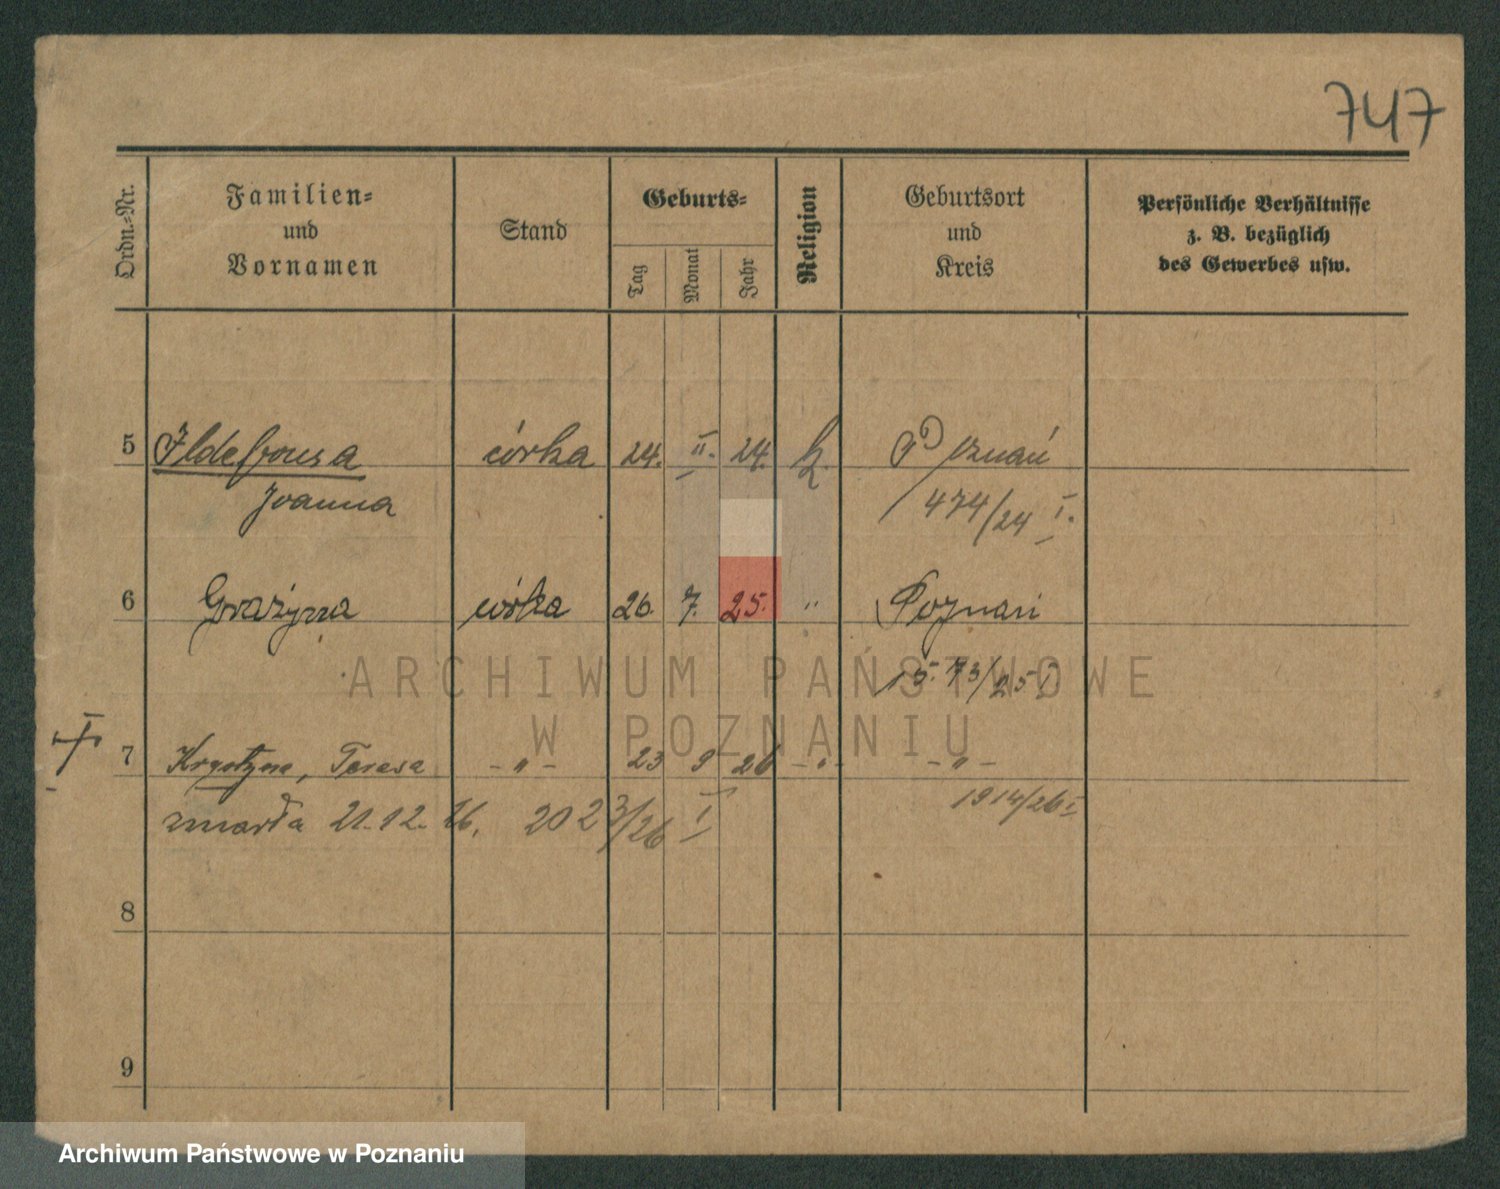 747
Ordn.-Nr.
Familien-
und
Vornamen
Stand
Geburts-
Tag
Monat
Jahr
Religion
Geburtsort
und
Kreis
Persönliche Verhältnisse
z. B. bezüglich
des Gewerbes usw.
5 Ildefonsa córka 24. II. 24. k. Poznań
Joanna 474/24 I.
6 Grażyna córka 26. 7. 25. " Poznań
1573/25 I
ARCHIWUM PAŃSTWOWE
W POZNANIU
7 Krystyna, Teresa -"- 23 9 26 -"- -"-
1914/26 I
zmarła 21.12.26. 2023/26 I
8
9
Archiwum Państwowe w Poznaniu